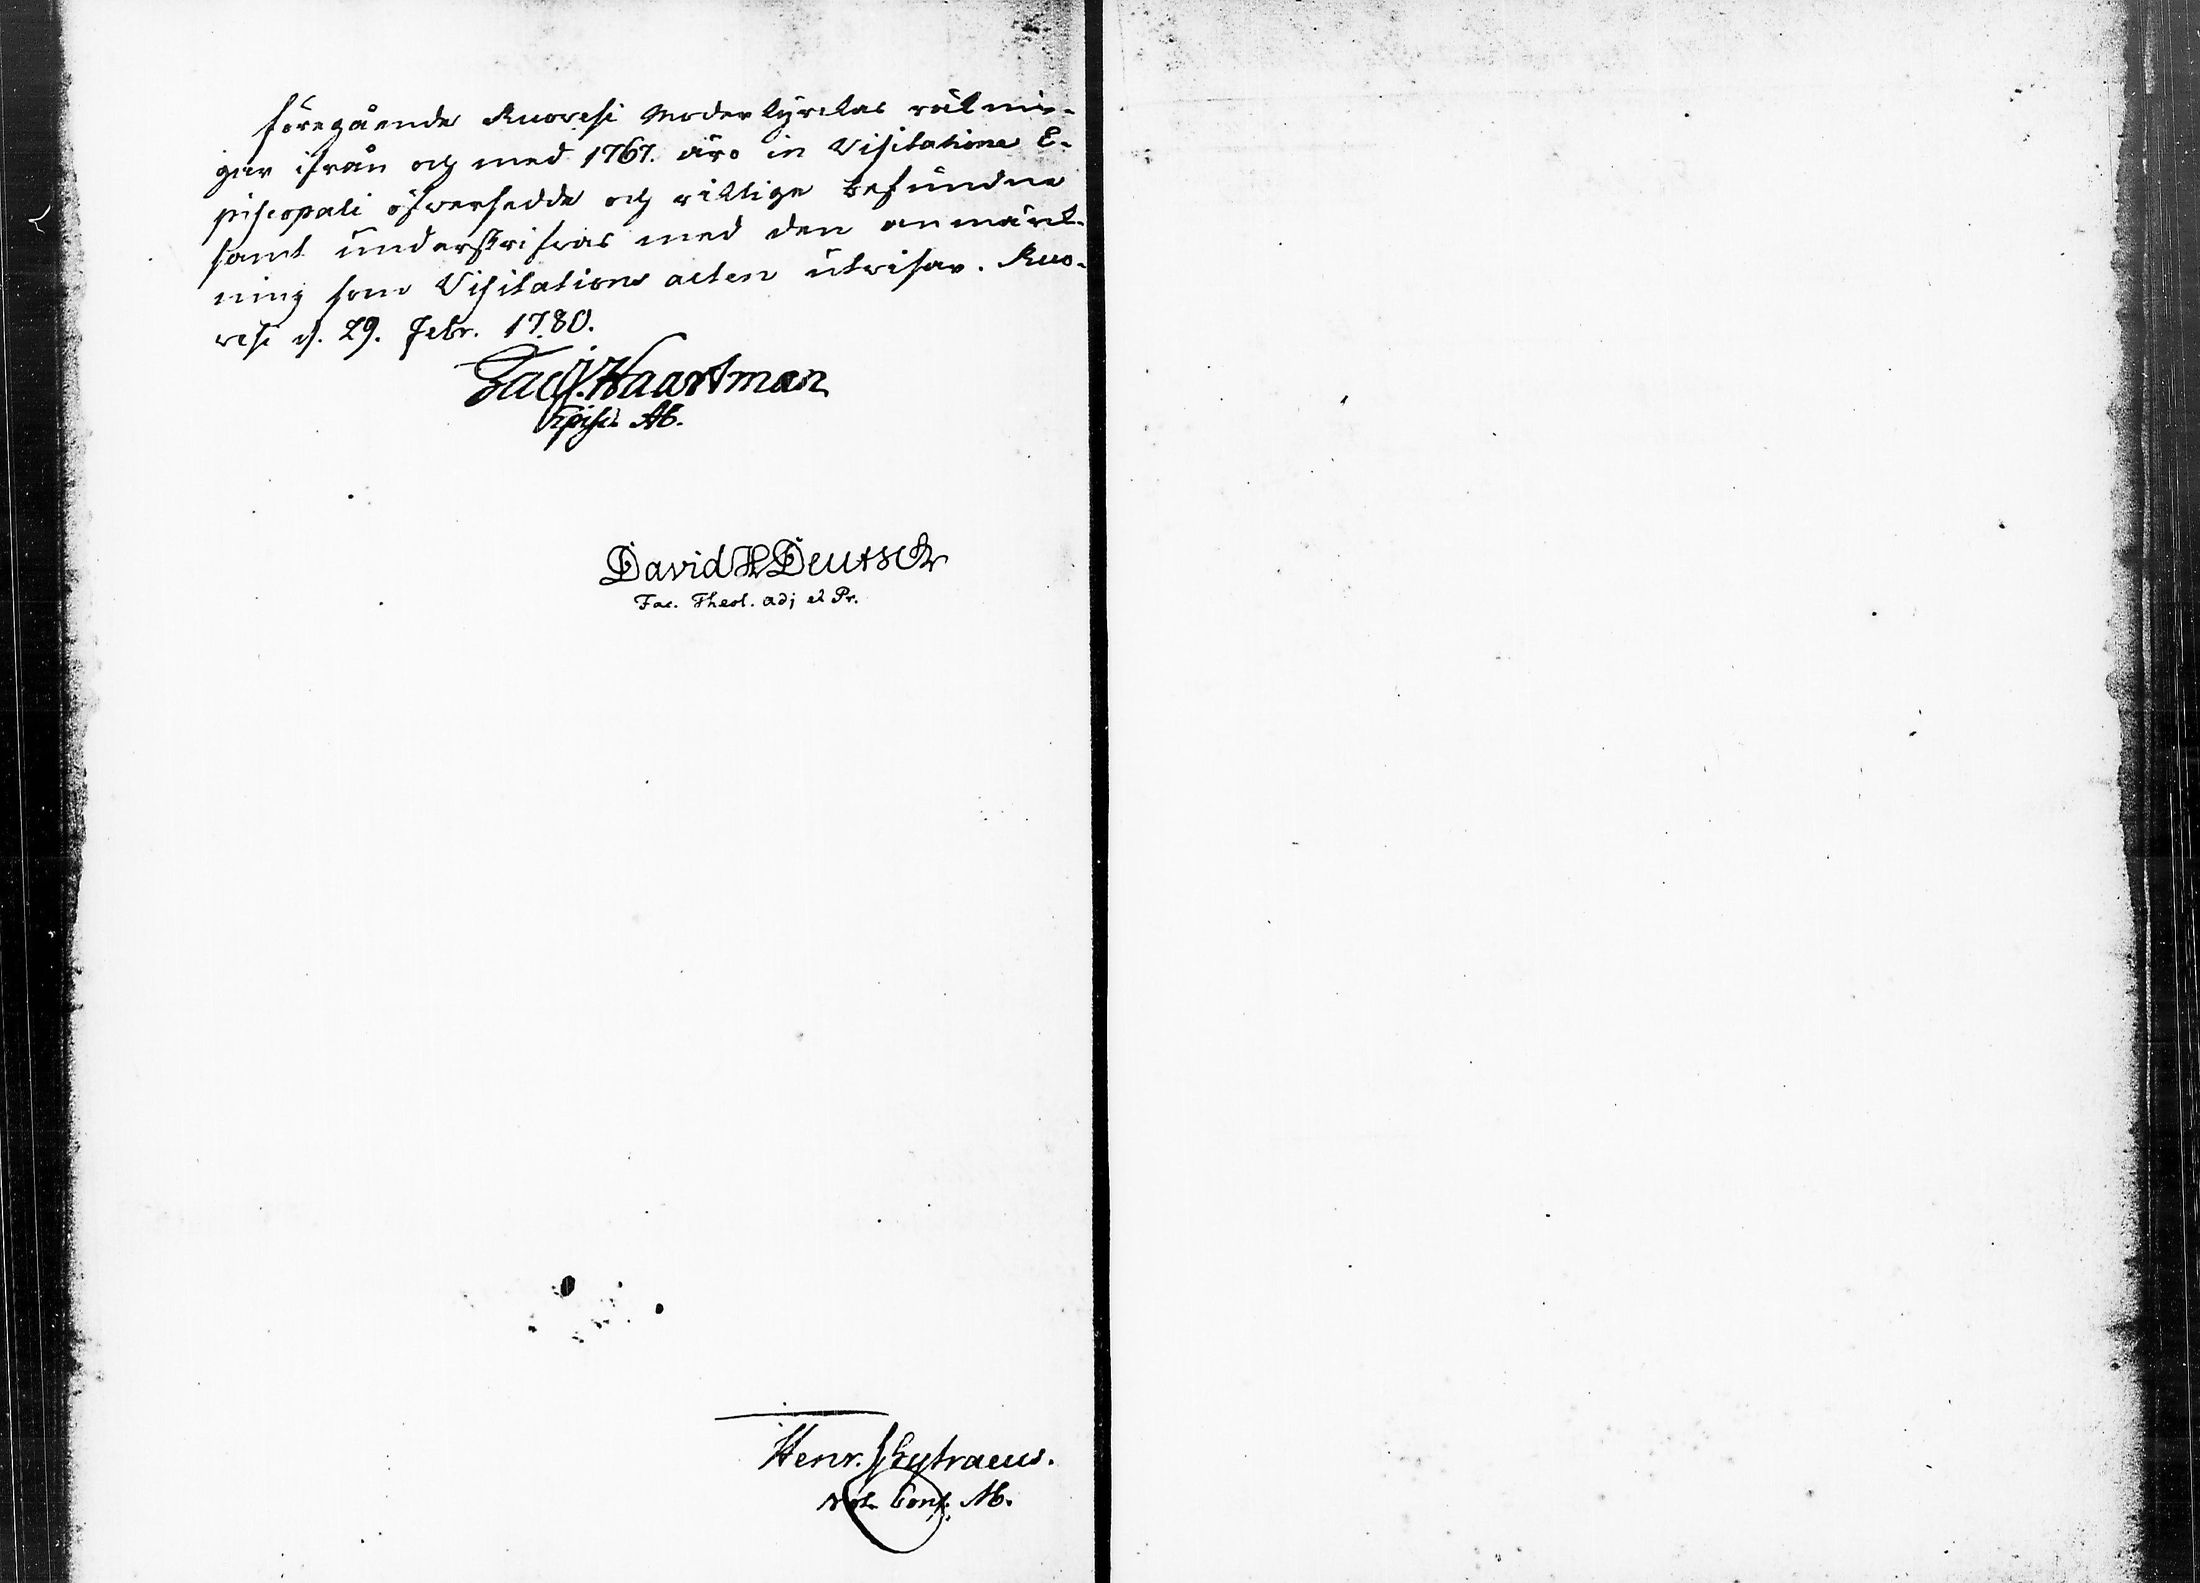 Föregående Ruovesi Moderkyrckas räknin-
gar ifrån och med 1767. äro in Visitatione E-
piscopali öfwersedde och riktige befundne
samt underskrifvas med den anmärk-
ning som Visitations acten utvisar. Ruo-
vesi d. 29. Febr. 1780.
Jac. Haartman
Episc. Ab.
David H Deutsch
Fac. Theol. adj et Pr.
Henr. Chytraeus.
Not. Cons. Ab.